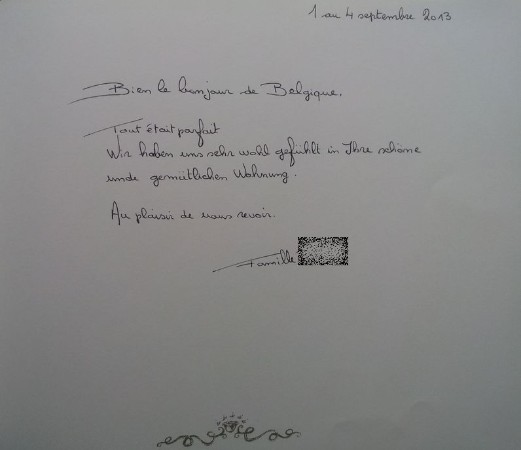 1 au 4 septembre 2013
Bien le bonjour de Belgique.
Tout était parfait
Wir haben uns sehr wohl gefühlt in Ihre schöne
unde gemütlichen Wohnung.
Au plaisir de vous revoir.
Famille